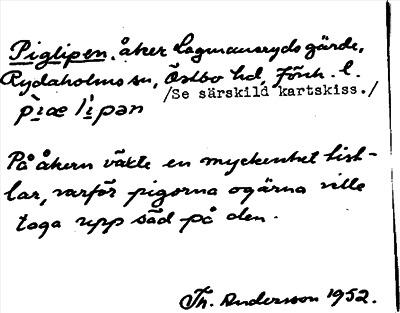 Piglipen, åker Lagmansryds gärde,
Rydaholms sn, Östbo hd, Jönk. l.
/Se särskild kartskiss./
pìæ lìpən
På åkern växte en myckenhet tist-
lar, varför pigorna ogärna ville
taga upp säd på den.
Th. Andersson 1952.